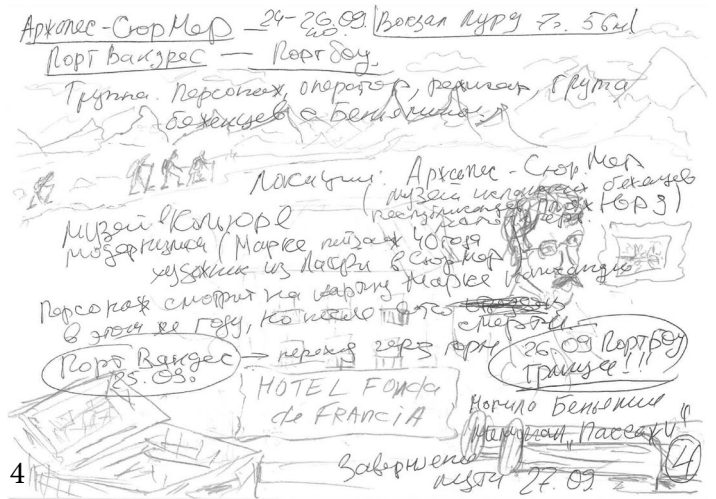 Аржелес-Сюр Мер — 24-26.09. 40. Вокзал 7г. 56м
Порт Вандрес — Портбоу.
Группа. Персонаж, оператор, режиссер, группа
беженцев с Беньямино.
Локации: Аржелес-Сюр.Мер
(музей испанских беженцев
республиканцев
Музей в Кольюре
модернизма (Марке пейзаж 40 года
художник из в Сюр Мер
Персонаж смотрит на картину Марке
в этом же году, но после его
смерти —
Порт Вандрес
25.09.
→ переход через горы
26.09 Портбоу
Граница!!!
HOTEL FONda
de FRANCIA
Могила Беньямина
Мемориал "Пассажи"
Завершение
пути 27.09.
4
4